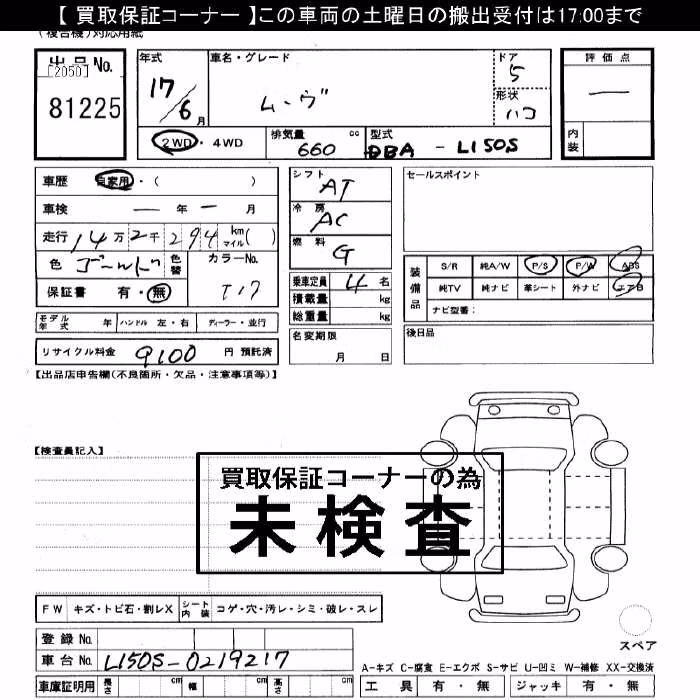 【 買取保証コーナー 】この車両の土曜日の搬出受付は17:00まで
(複合機)対応用紙
出品No. [2050] 81225
年式 17/6月
車名・グレード ムーヴ
ドア 5
形状 ハコ
評価点 ―
内装
2WD・4WD
排気量 660 cc
型式 DBA - L150S
車歴 自家用・( )
車検 ― 年 ― 月
走行 14万2千294 km マイル( )
色 ゴールド 色替 カラーNo. T17
保証書 有・無
モデル年式 年 ハンドル 左・右 ディーラー・並行
リサイクル料金 9100 円 預託済
シフト AT
冷房 AC
燃料 G
乗車定員 4 名
積載量 kg
総重量 kg
名変期限 月 日
セールスポイント
装備品 S/R 純A/W P/S P/W ABS
純TV 純ナビ 革シート 外ナビ エアB
ナビ型番:
後日品
【出品店申告欄(不良箇所・欠品・注意事項等)】
【検査員記入】
買取保証コーナーの為
未検査
FW キズ・トビ石・割レX シート内装 コゲ・穴・汚レ・シミ・破レ・スレ
スペア
登録No.
車台No. L150S-0219217
A-キズ C-腐食 E-エクボ S-サビ U-凹ミ W-補修 XX-交換済
車庫証明用 長さ cm 幅 cm 高さ cm
工具 有・無 ジャッキ 有・無